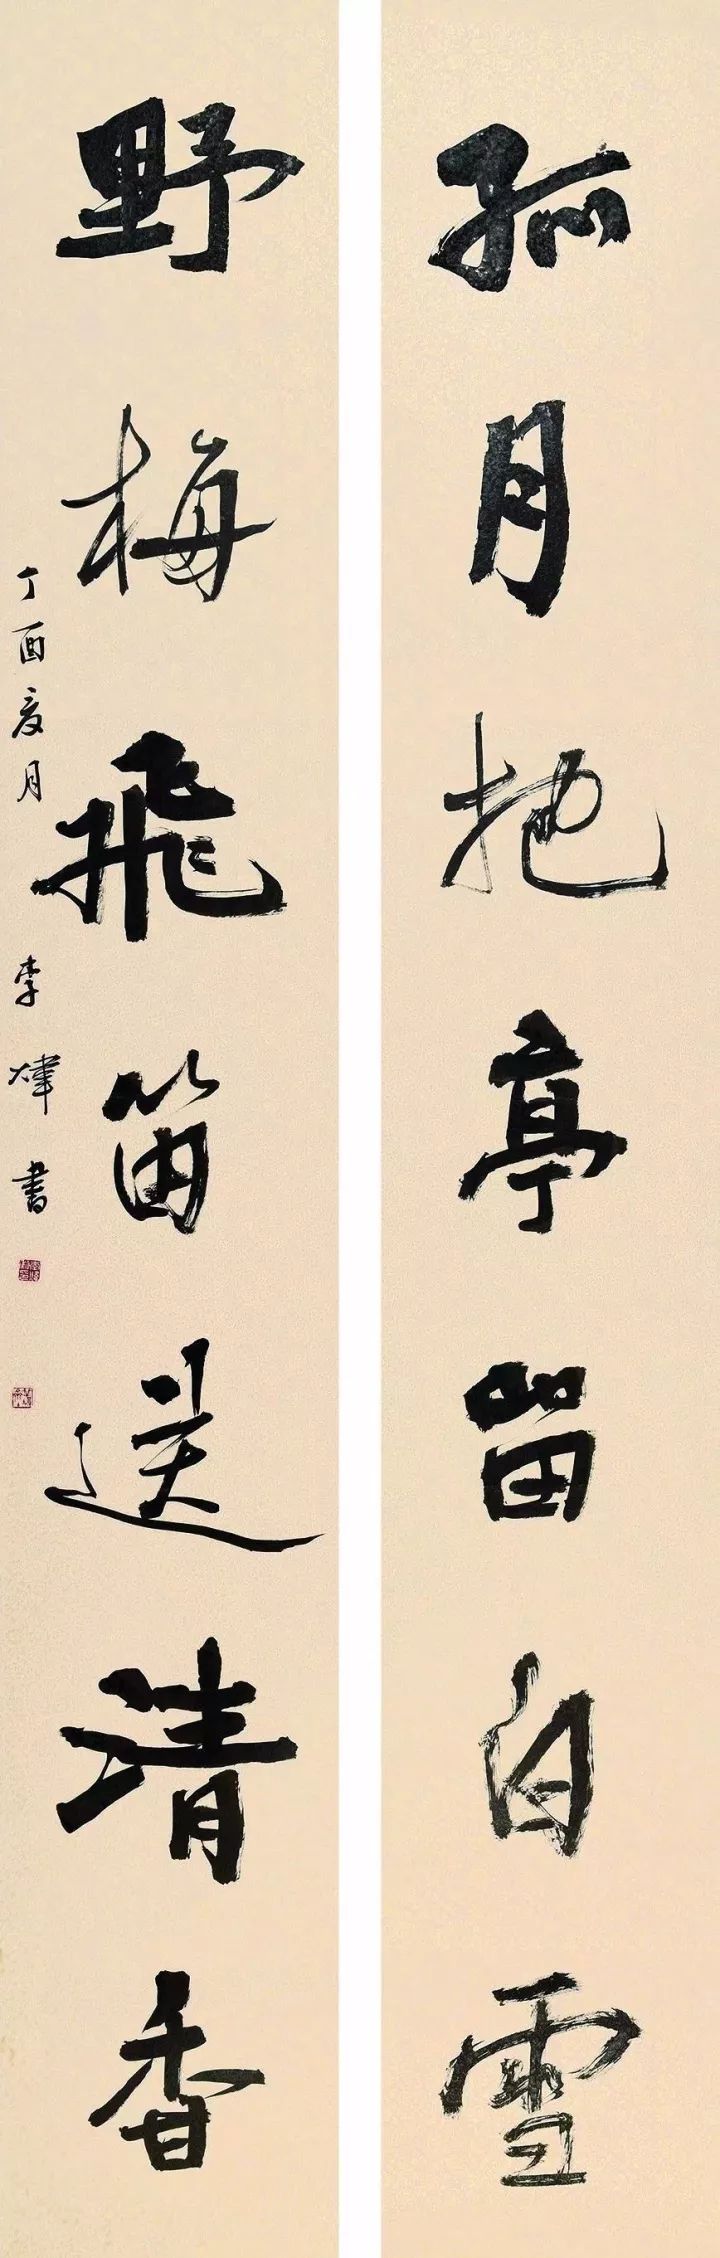 孤月抱亭留白雪
野梅飛笛送清香
丁酉夏月
李煒書